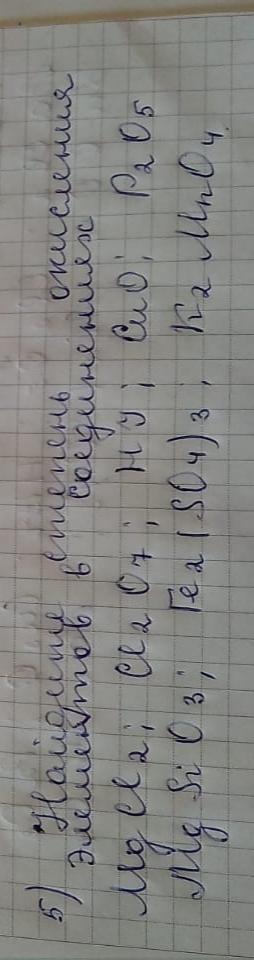 5) Найдите степень окисления
элементов в соединениях
MgCl2; Cl2O7; HJ; CuO; P2O5
MgSiO3; Fe2(SO4)3; K2MnO4